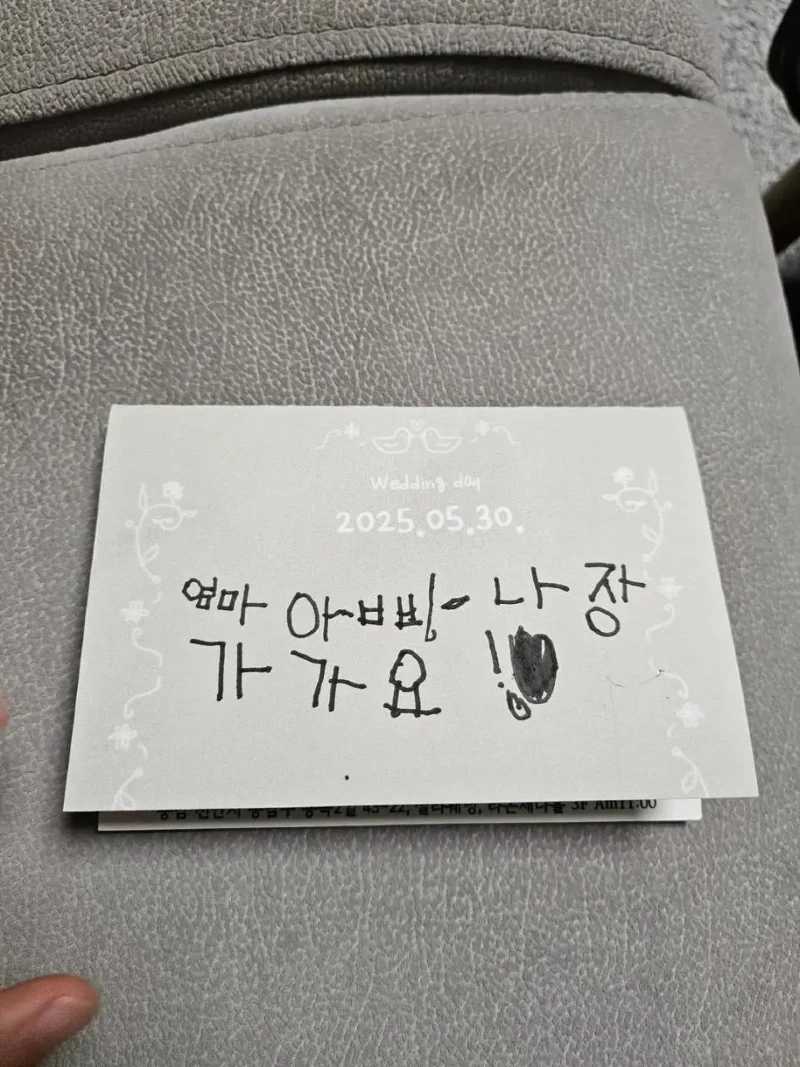 Wedding day
2025.05.30.
엄마 아빠~ 나 장
가 가요 !
43-22, 3F Am11:00